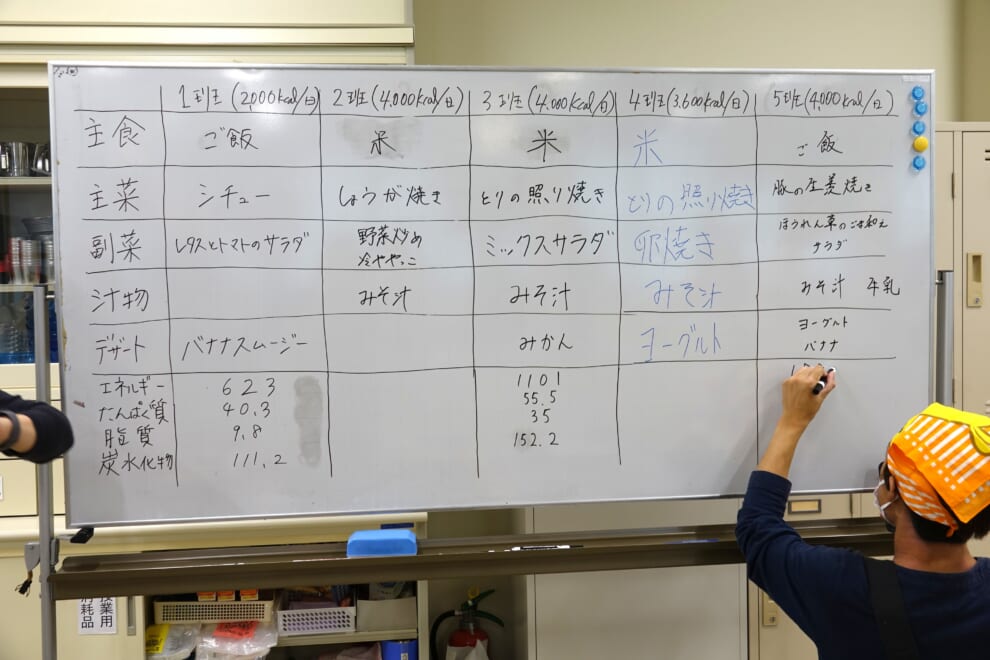 1班 (2,000kcal/日) 2班 (4,000kcal/日) 3班 (4,000kcal/日) 4班 (3,600kcal/日) 5班 (4,000kcal/日)
主食 ご飯 米 米 米 ご飯
主菜 シチュー しょうが焼き とりの照り焼き とりの照り焼き 豚の生姜焼き
副菜 レタスとトマトのサラダ 野菜炒め ミックスサラダ 卵焼き ほうれん草のごま和え
冷ややっこ サラダ
汁物 みそ汁 みそ汁 みそ汁 みそ汁 牛乳
デザート バナナスムージー みかん ヨーグルト ヨーグルト
バナナ
エネルギー 623 1101
たんぱく質 40.3 55.5
脂質 9.8 35
炭水化物 111.2 152.2
授業用
消耗品